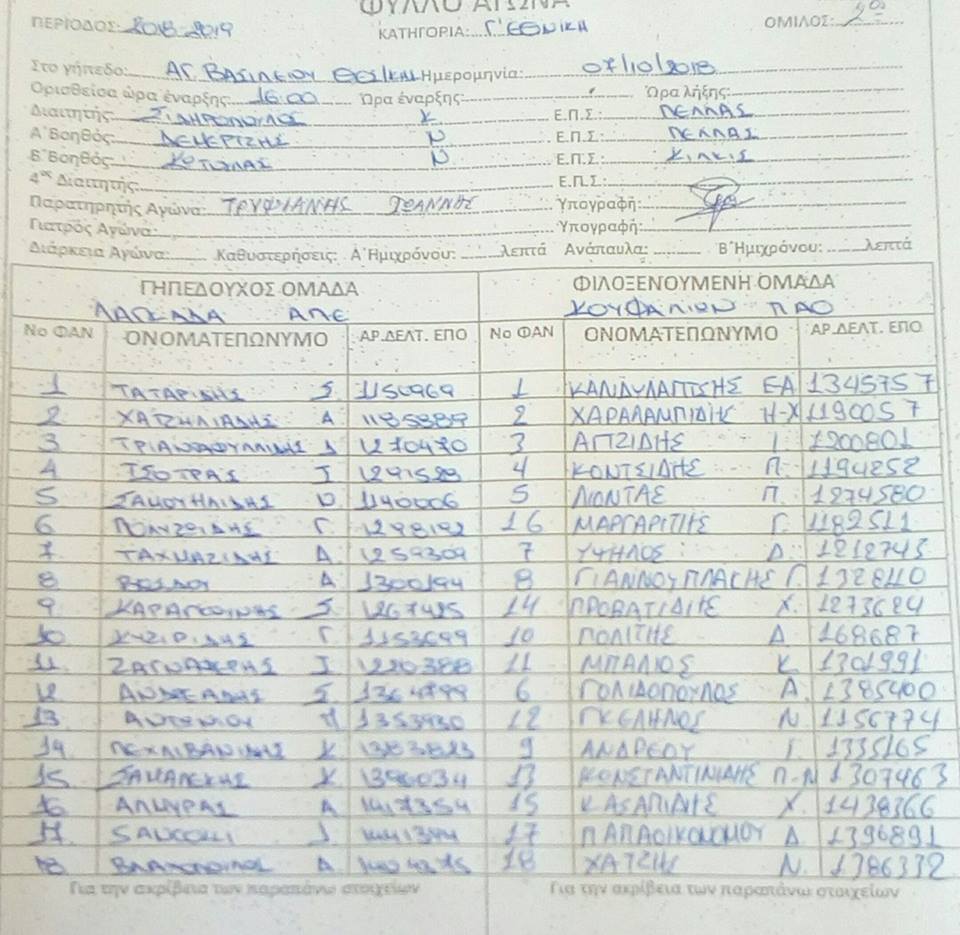 ΦΥΛΛΟ ΑΓΩΝΑ
ΠΕΡΙΟΔΟΣ: 2018-2019 ΚΑΤΗΓΟΡΙΑ: Γ' ΕΘΝΙΚΗ ΟΜΙΛΟΣ: 2ος
Στο γήπεδο: ΑΓ. ΒΑΣΙΛΕΙΟΥ ΘΕΣ/ΚΗΣ Ημερομηνία: 07/10/2018
Ορισθείσα ώρα έναρξης: 16.00 Ώρα έναρξης: Ώρα λήξης:
Διαιτητής: ΣΙΔΗΡΟΠΟΥΛΟΣ Κ Ε.Π.Σ: ΠΕΛΛΑΣ
Α΄Βοηθός: ΔΕΜΕΡΤΖΗΣ Ν Ε.Π.Σ: ΠΕΛΛΑΣ
Β΄Βοηθός: ΚΟΤΟΛΑΣ Ν Ε.Π.Σ: ΚΙΛΚΙΣ
4ος Διαιτητής: Ε.Π.Σ:
Παρατηρητής Αγώνα: ΤΡΥΦΙΑΝΗΣ ΙΩΑΝΝΗΣ Υπογραφή:
Γιατρός Αγώνα: Υπογραφή:
Διάρκεια Αγώνα: Καθυστερήσεις: Α΄Ημιχρόνου: λεπτά Ανάπαυλα: Β΄Ημιχρόνου: λεπτά
ΓΗΠΕΔΟΥΧΟΣ ΟΜΑΔΑ ΦΙΛΟΞΕΝΟΥΜΕΝΗ ΟΜΑΔΑ
ΛΑΓΚΑΔΑ ΑΠΕ ΚΟΥΦΑΛΙΩΝ ΠΑΟ
Νο ΦΑΝ ΟΝΟΜΑΤΕΠΩΝΥΜΟ ΑΡ.ΔΕΛΤ. ΕΠΟ Νο ΦΑΝ ΟΝΟΜΑΤΕΠΩΝΥΜΟ ΑΡ.ΔΕΛΤ. ΕΠΟ
1 ΤΑΤΑΡΙΔΗΣ Σ 1150969 1 ΚΑΝΔΥΛΑΠΤΣΗΣ ΕΑ 1345757
2 ΧΑΤΖΗΛΙΑΔΗΣ Α 1185889 2 ΧΑΡΑΛΑΜΠΙΔΗΣ Η-Χ 1190057
3 1270470 3 ΑΓΤΖΙΔΗΣ Ι 1200801
4 ΤΣΟΤΡΑΣ Ι 1291589 4 ΚΟΝΤΣΙΔΗΣ Π. 1194252
5 ΣΑΜΟΥΗΛΙΔΗΣ 1140006 5 ΛΙΟΝΤΑΣ Π. 1274580
6 ΠΟΛΥΖΩΙΔΗΣ Γ. 1298192 16 ΜΑΡΓΑΡΙΤΗΣ Γ. 1182511
7 ΤΑΧΜΑΖΙΔΗΣ Α. 1259309 7 ΥΨΗΛΟΣ Δ. 1212743
8 ΒΟΣΔΟΥ Α 1300194 8 ΓΙΑΝΝΟΥΠΛΑΣΗΣ Γ. 1328110
9 ΚΑΡΑΓΚΟΥΝΗΣ Σ. 1267425 14 ΠΡΟΒΑΤΙΔΗΣ Χ. 1273624
10 ΚΥΖΙΡΙΔΗΣ Γ. 1153699 10 ΠΟΛΙΤΗΣ Δ. 168687
11 Ι 1220388 11 ΜΠΑΛΙΟΣ Κ 1301991
12 ΑΝΔΡΕΑΔΗΣ Σ 1364799 6 ΓΟΛΙΔΟΠΟΥΛΟΣ Α. 1385400
13 ΑΝΤΩΝΙΟΥ 1353930 12 ΓΚΕΛΗΝΟΣ Ν. 1156774
14 ΠΕΧΛΙΒΑΝΙΔΗΣ Κ. 1383823 9 ΑΝΔΡΕΟΥ Γ. 1335165
15 ΣΑΜΑΛΕΚΗΣ Κ 1396034 13 ΚΩΝΣΤΑΝΤΙΝΙΔΗΣ Π-Ν 1307463
16 ΑΛΜΥΡΑΣ Α 1417354 15 ΚΑΣΑΠΙΔΗΣ Χ. 1438366
17 1441344 17 ΠΑΠΑΟΙΚΟΝΟΜΟΥ Δ. 1396891
18 ΒΛΑΧΟΠΟΥΛΟΣ Α 18 ΧΑΤΖΗΣ Ν. 1386332
Για την ακρίβεια των παραπάνω στοιχείων Για την ακρίβεια των παραπάνω στοιχείων